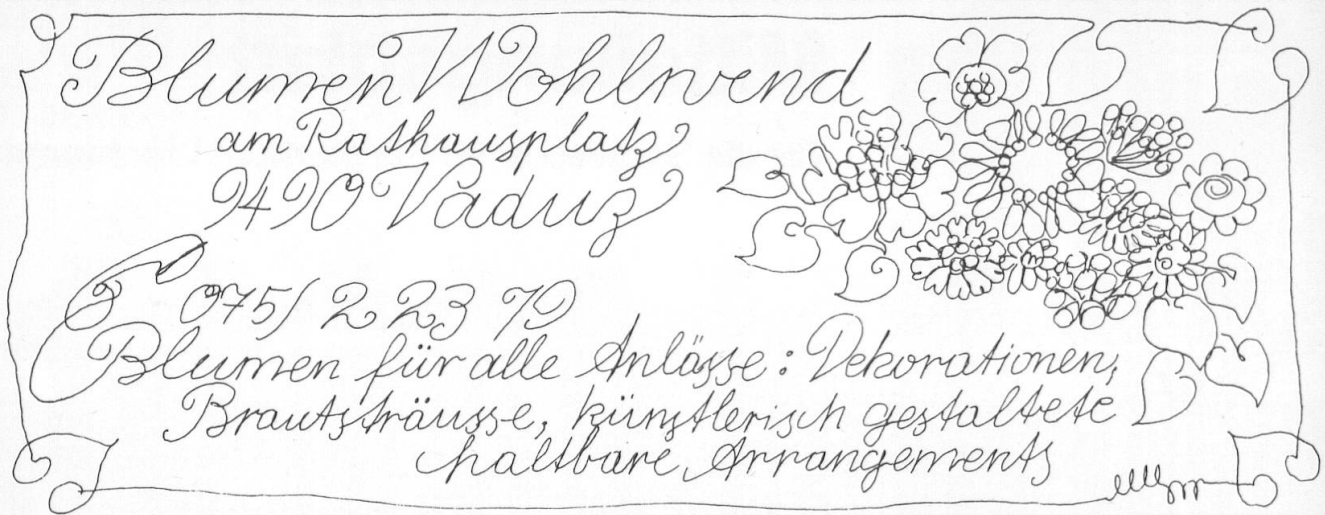 Blumen Wohlwend
am Rathausplatz
9490 Vaduz
075/ 2 23 79
Blumen für alle Anlässe: Dekorationen,
Brautsträusse, künstlerisch gestaltete
haltbare Arrangements